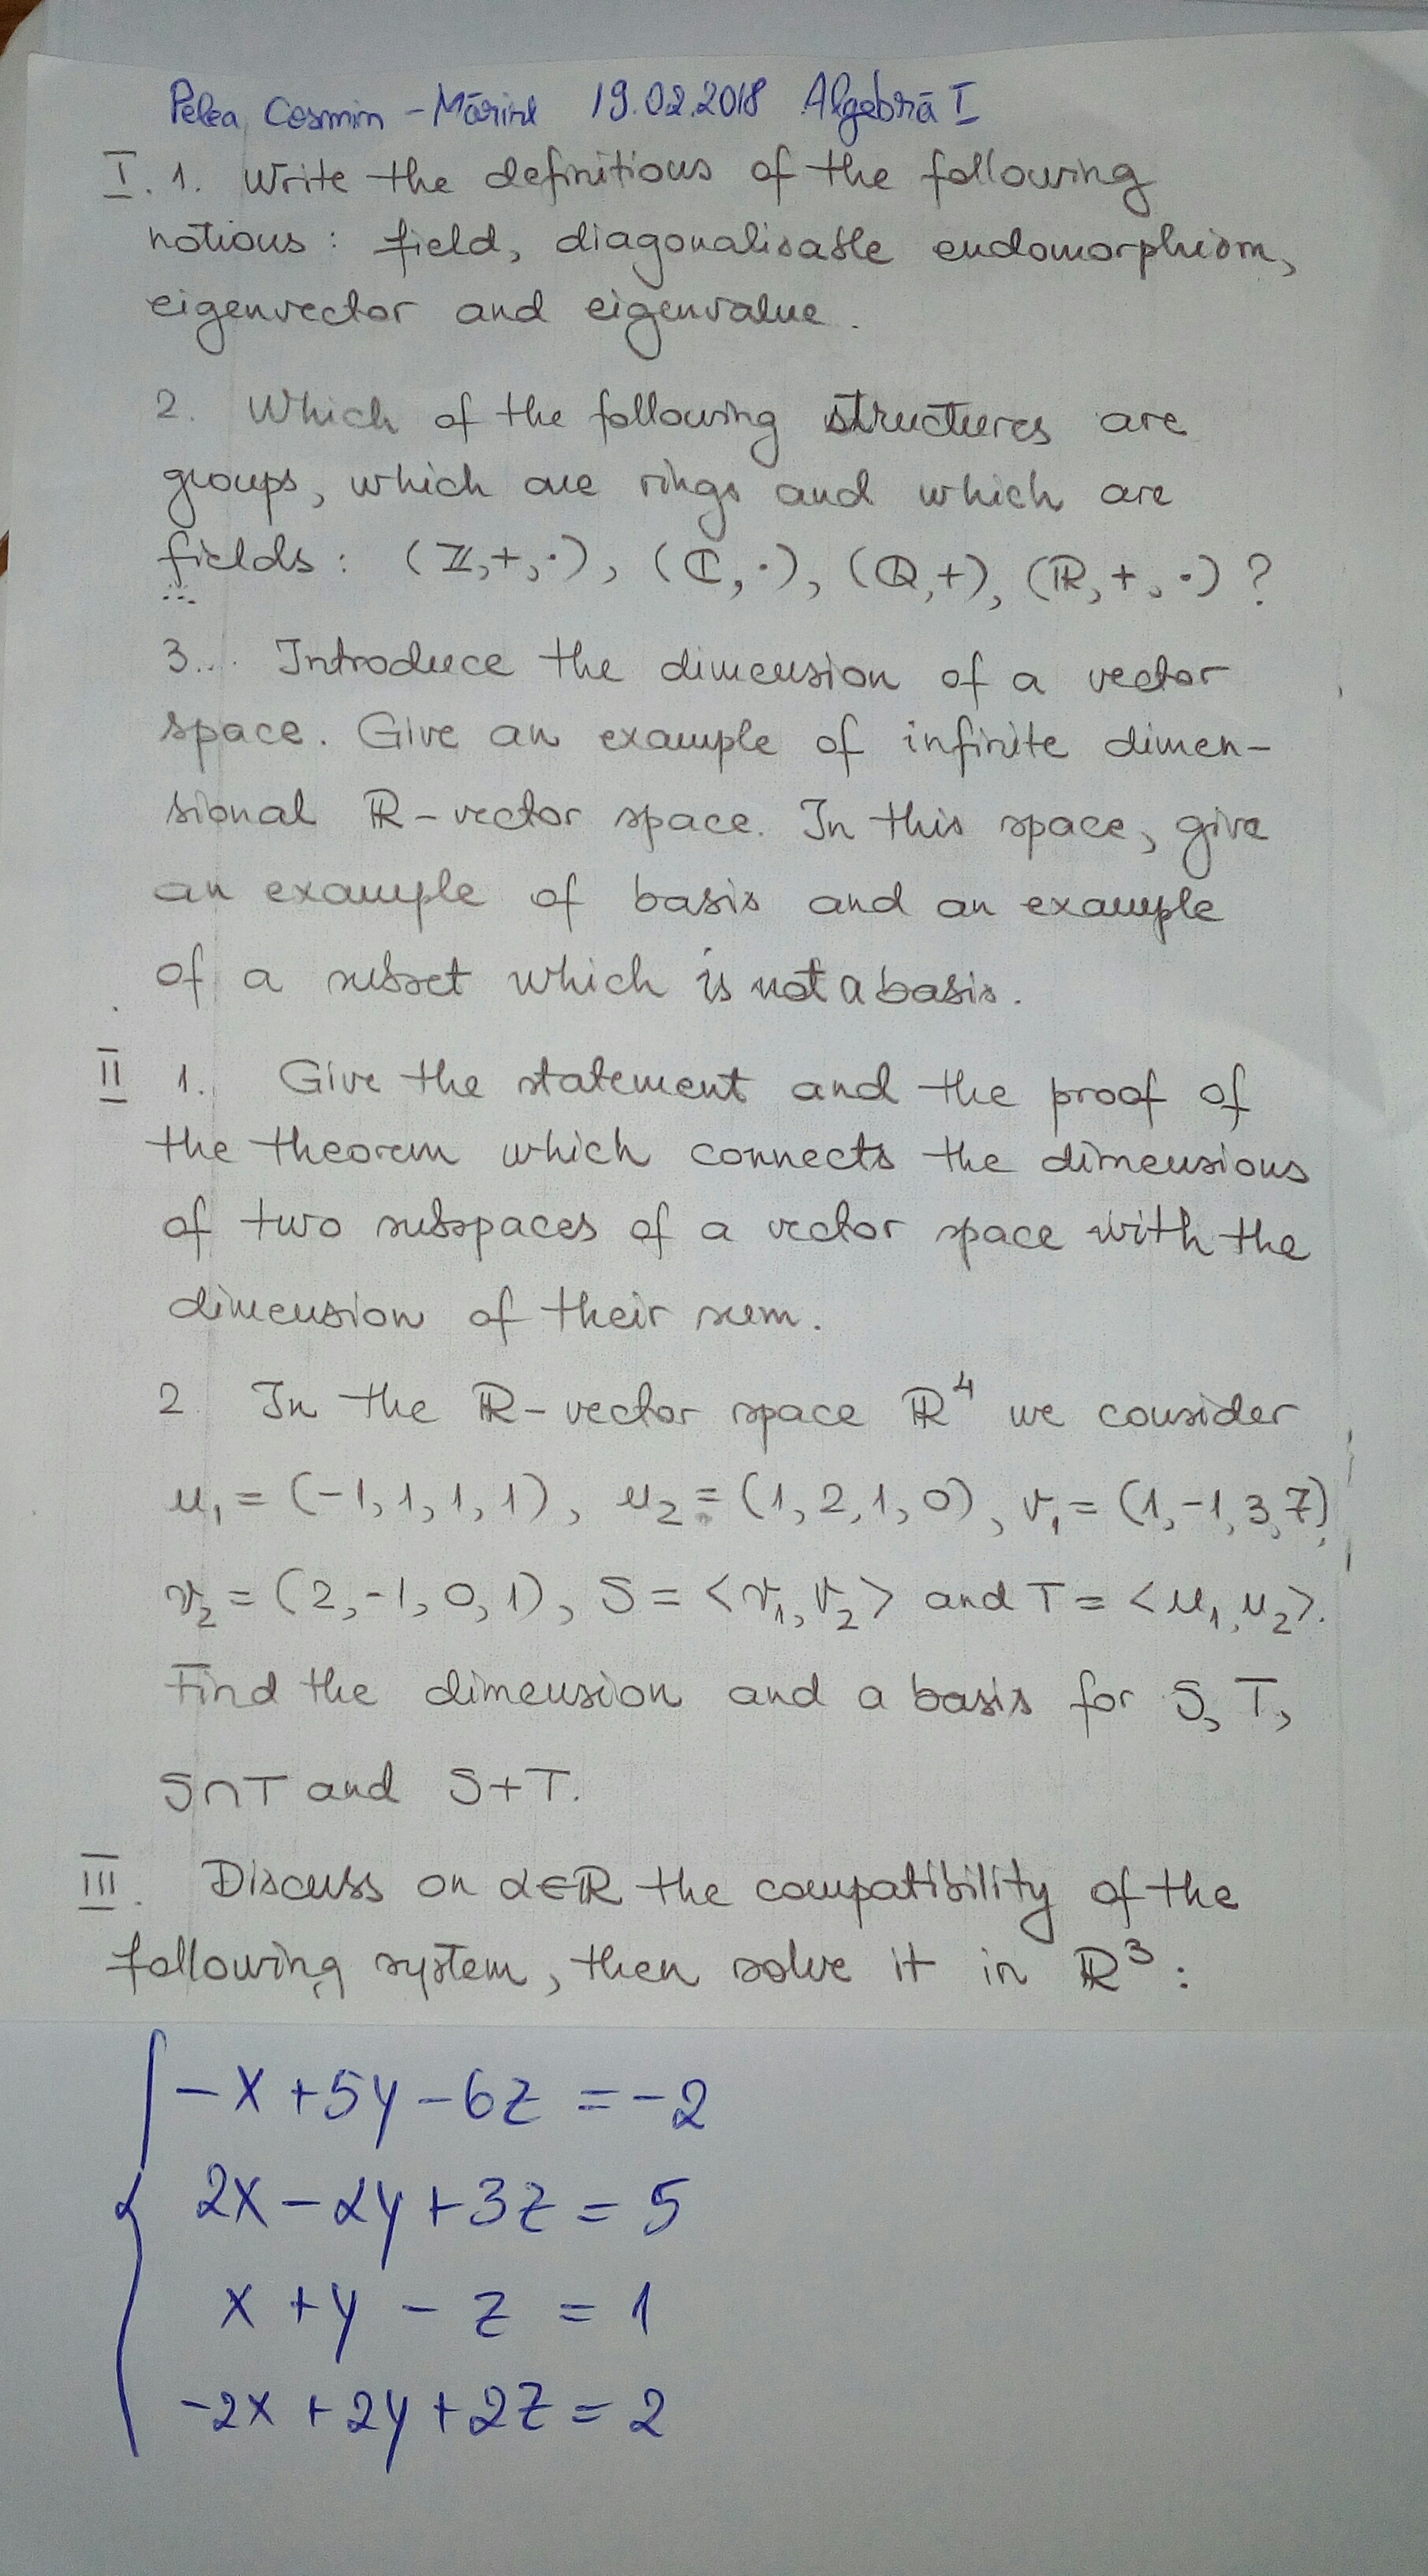 Pelea Cosmin-Mărire 19.02.2018 Algebră I
I. 1. Write the definitions of the following
notions: field, diagonalisable endomorphism,
eigenvector and eigenvalue.
2. Which of the following structures are
groups, which are rings and which are
fields: (ℤ,+,·), (ℂ,·), (ℚ,+), (ℝ,+,·)?
3... Introduce the dimension of a vector
space. Give an example of infinite dimen-
sional ℝ-vector space. In this space, give
an example of basis and an example
of a subset which is not a basis.
II 1. Give the statement and the proof of
the theorem which connects the dimensions
of two subspaces of a vector space with the
dimension of their sum.
2 In the ℝ-vector space ℝ⁴ we consider
u₁ = (-1,1,1,1), u₂ = (1,2,1,0), v₁ = (1,-1,3,7),
v₂ = (2,-1,0,1), S = <v₁,v₂> and T = <u₁,u₂>.
Find the dimension and a basis for S, T,
S∩T and S+T.
III. Discuss on α∈ℝ the compatibility of the
following system, then solve it in ℝ³:
-x+5y-6z = -2
2x-αy+3z = 5
x+y-z = 1
-2x+2y+2z = 2